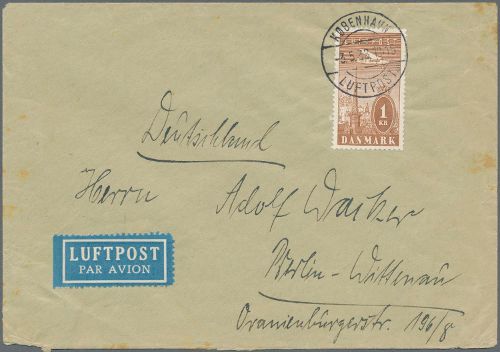 KØBENHAVN
LUFTPOST
1
KR.
DANMARK
Deutschland
Herrn Adolf Wacker
LUFTPOST
PAR AVION
Berlin-Wittenau
Oranienburgerstr. 196/8